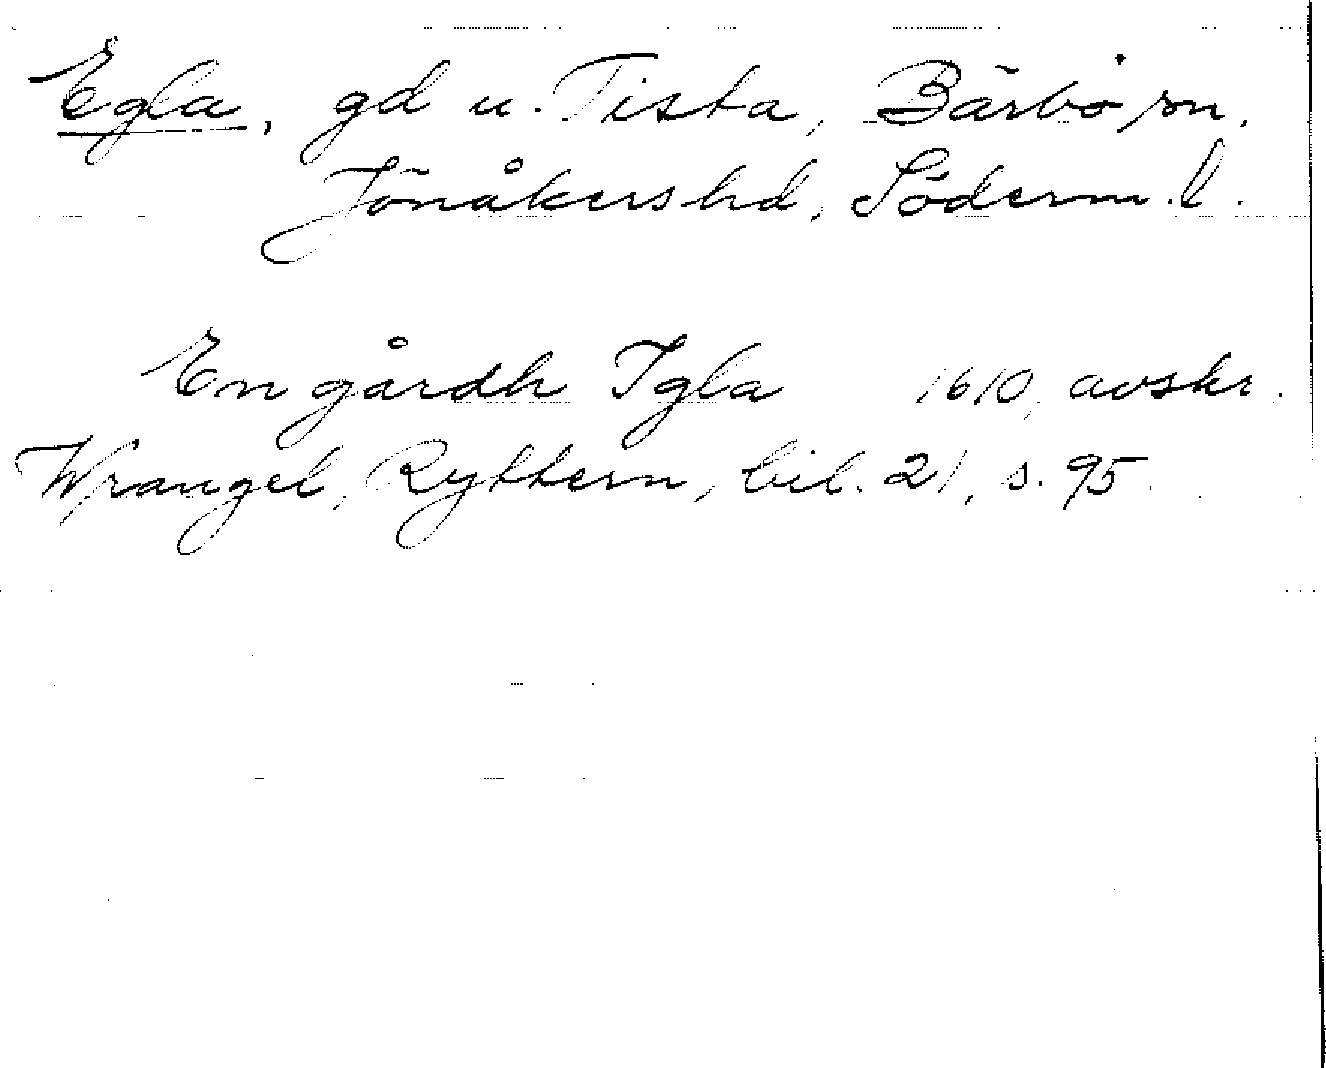 Egla, gd u. Tista, Bärbo sn,
Jönåkers hd, Söderm. l.
En gårdh Igla 1610, avskr.
Wrangel, Ryttern, bil. 21, s. 95.